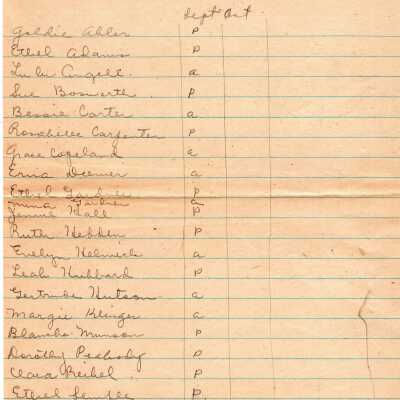 Sept Oct
Goldie Ahler P
Ethel Adams P
Lulu a
Sue Bosworth P
Bessie Carter a
Rosabelle Carpenter P
Grace Copeland a
Erma Deemer a
Ethel Gardner P
Emma Gardner a
Jennie Hall P
Ruth Hebden P
Evelyn Helmick a
Leah Hubbard P
Gertrude Hutson a
Margie Klinger a
Blanche Munson P
Dorothy Peabody P
Clara Reihel P
Ethel Semple P.